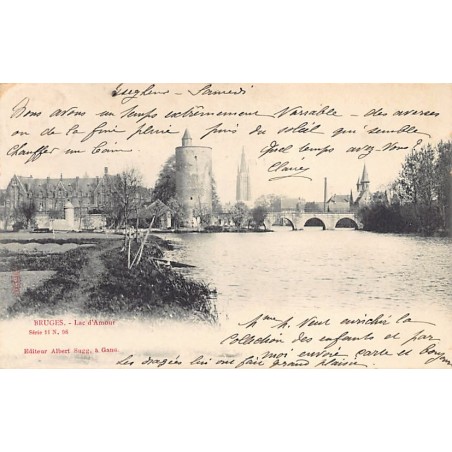 Samedi
Nous avons un temps extrêmement Variable - des averses
ou de la fine pluie puis du soleil qui semble
Chauffer un bain Quel temps avez-vous?
Claire
BRUGES. - Lac d'Amour
Série 11 N. 56
Editeur Albert Sugg, à Gand
Veut enrichir la
Collection des enfants et par
moi envoie carte et
Les dragées lui ont fait grand plaisir.